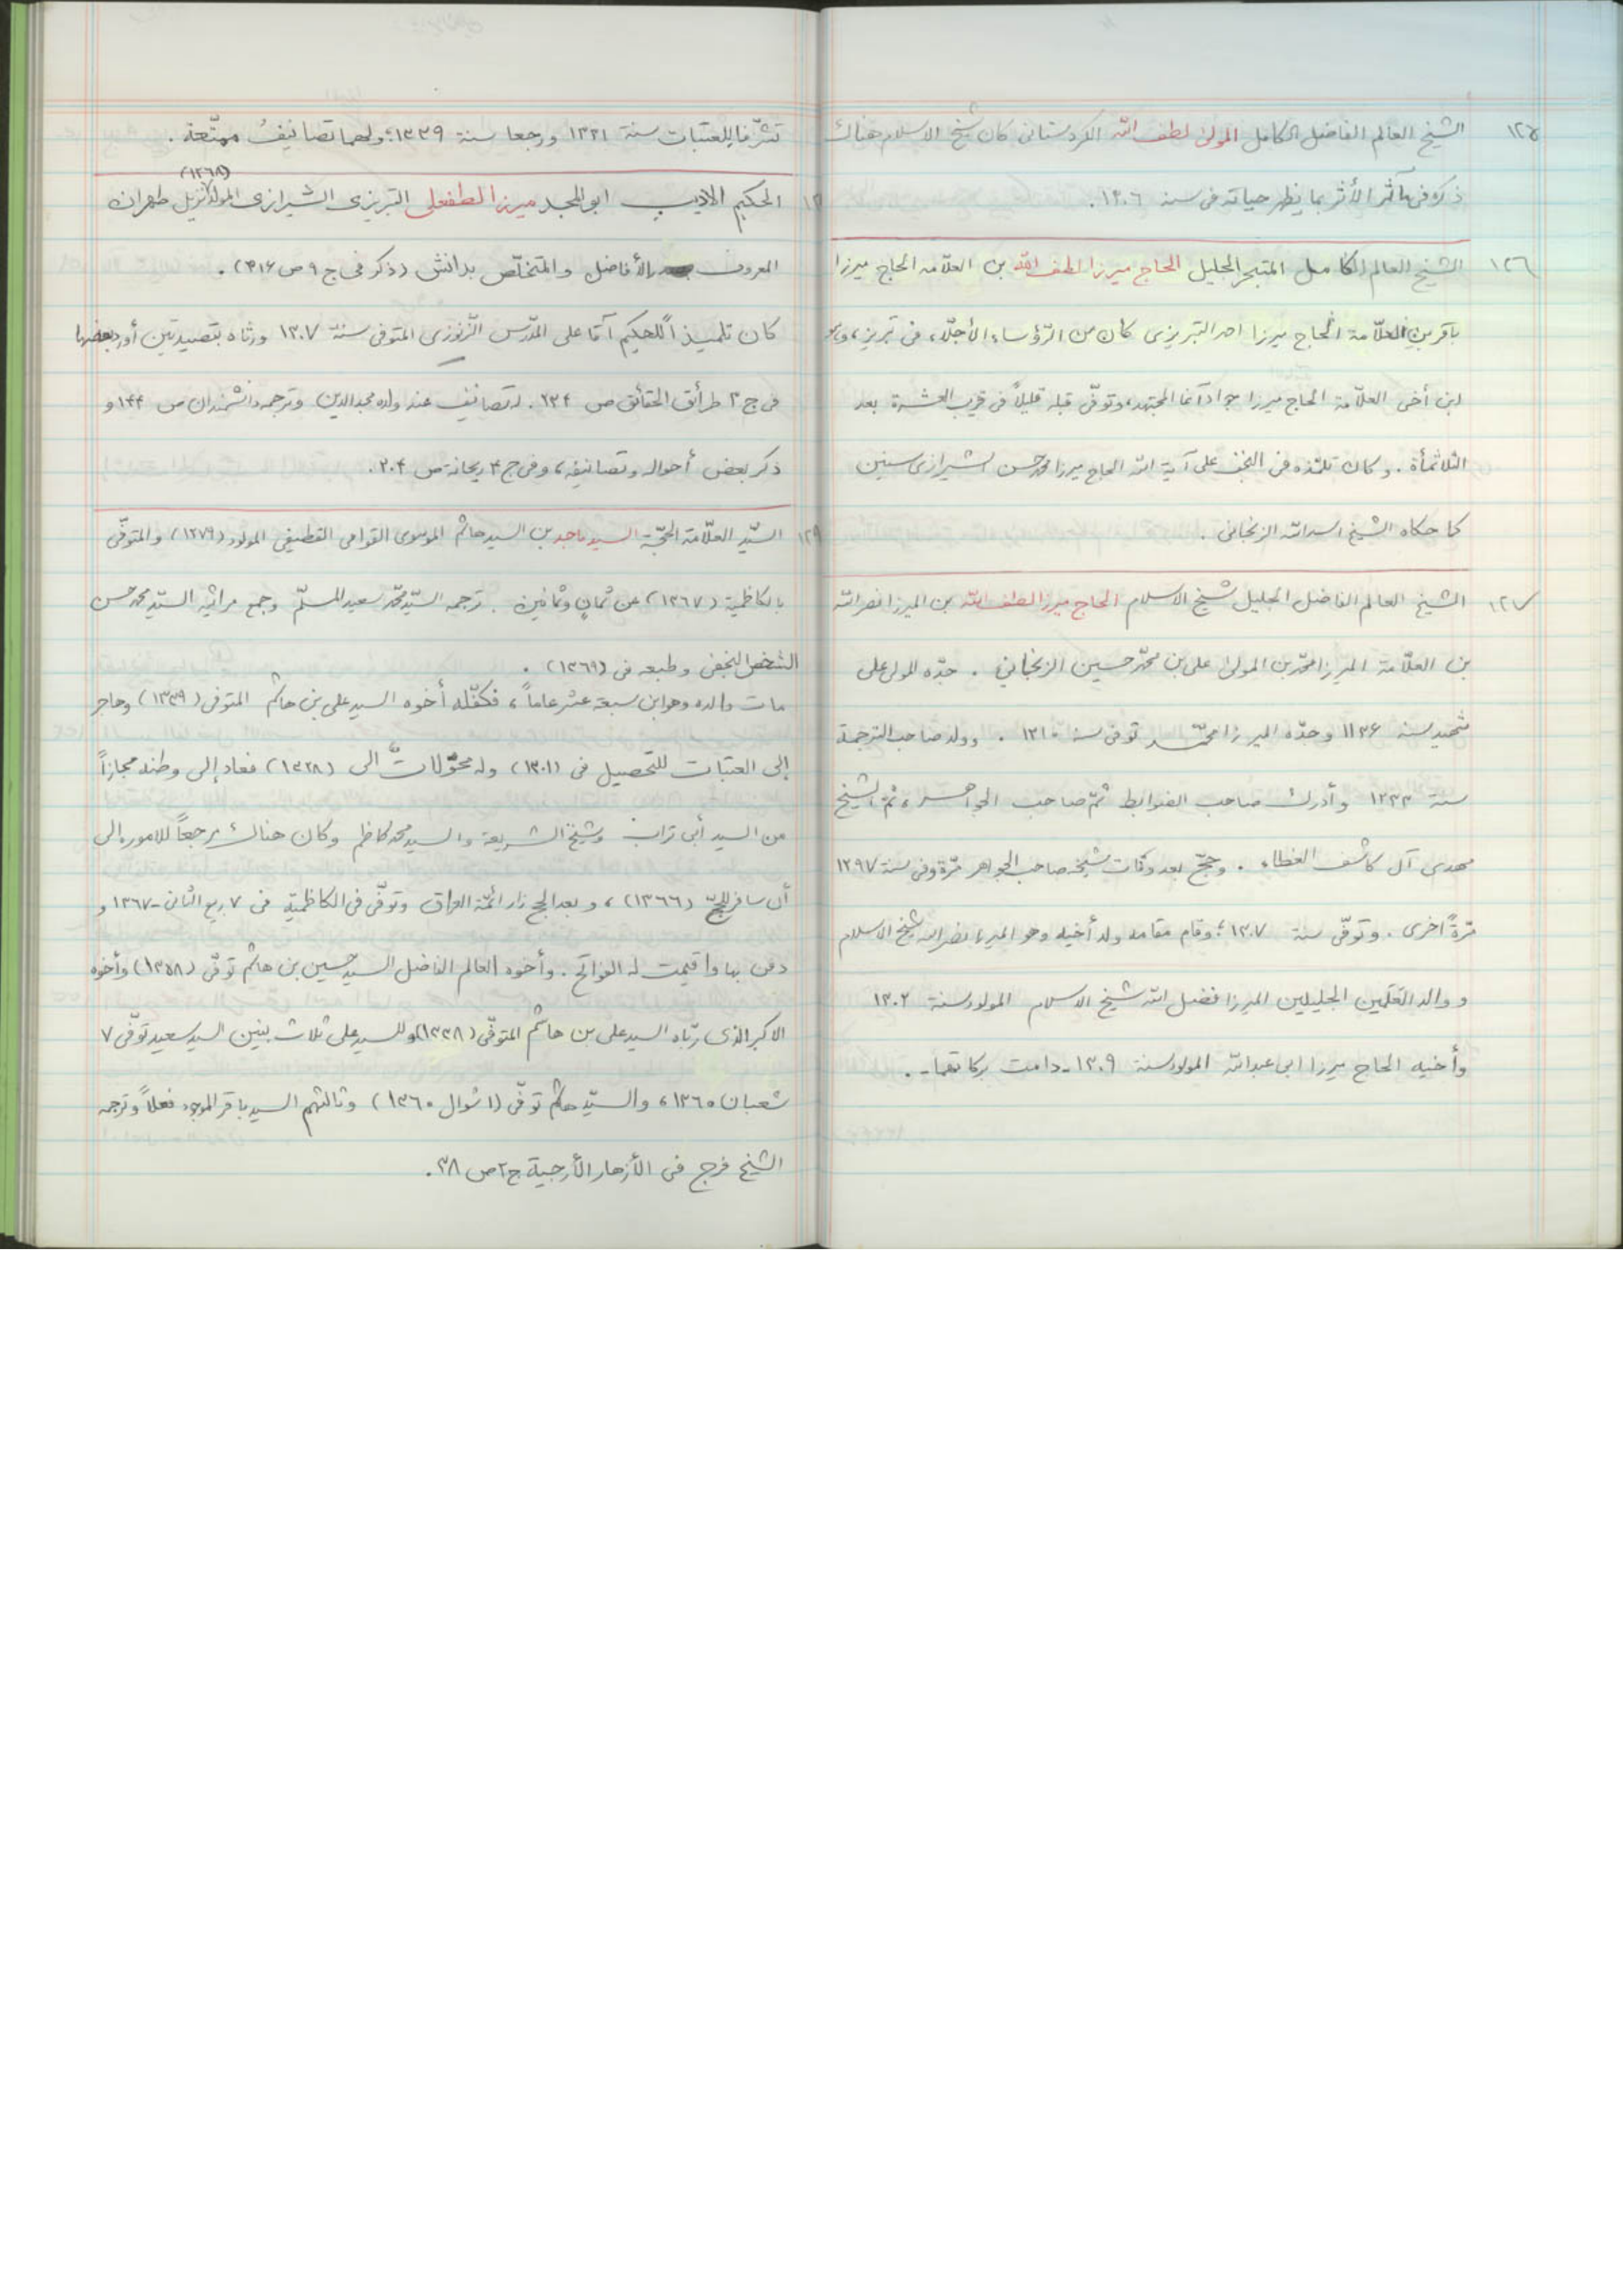 ١٢٥ الشيخ العالم الفاضل الكامل المولى لطف الله الكردستانى كان شيخ الاسلام هناك
ذكره فى مآثر الأثر بما يظهر حياته فى سنة ١٣٠٦ .
١٢٦ الشيخ العالم الكامل المتبحر الجليل الحاج ميرزا لطف الله بن العلّامة الحاج ميرزا
باقر بن العلّامة الحاج ميرزا احمد التبريزى كان من الرّؤساء الأجلّاء فى تبريز، وهو
ابن أخى العلّامة الحاج ميرزا جواد آغا المجتهد، وتوفّى قبله قليلاً فى قريب العشرة بعد
الثلاثمأة . و كان تلمّذه فى النجف على آية الله الحاج ميرزا محمد حسن الشيرازى سنين
كما حكاه الشيخ اسد الله الزنجانى .
١٢٧ الشيخ العالم الفاضل الجليل شيخ الاسلام الحاج ميرزا لطف الله بن الميرزا نصر الله
بن العلّامة الميرزا محمّد بن المولى على بن محمّد حسين الزنجانى . جدّه المولى على
شهيد سنة ١١٣۶ وجدّه الميرزا محمّد توفى سنة ١٢١٠ . وولد صاحب الترجمة
سنة ١٢٣٣ وأدرك صاحب الضوابط ثمّ صاحب الجواهر، ثمّ الشيخ
مهدى آل كاشف الغطاء . وحجّ بعد وفات شيخه صاحب الجواهر مرّة وفى سنة ١٢٩٧
مرّةً اخرى . وتوفّى سنة ١٣٠٧؛ وقام مقامه ولد أخيه وهو الميرزا نصر الله شيخ الاسلام
ووالد العَلَمين الجليلين الميرزا فضل الله شيخ الاسلام المولود سنة ١٣٠٢
وأخيه الحاج ميرزا ابى عبدالله المولود سنة ١٣٠٩ـ دامت بركاتهما ـ .
تشرّفا للعتبات سنة ١٣٢١ ورجعا سنة ١٣٣٩؛ ولهما تصانيفُ ممتّعة .
الحكيم الاديب ابو المجد ميرزا لطفعلى التبريزى الشيرازى المولد (١٢٦٨) نزيل طهران
المعروف بـ الأفاضل والمتخلّص بدانش (ذكر فى ج ٩ ص ٣١۶) .
كان تلميذاً للحكيم آقا على المدّرس الزّنوزى المتوفى سنة ١٣٠٧ ورثاه بقصيدتين أورد بعضها
فى ج ٣ طرائق الحقائق ص ٢٣۴. له تصانيف عند ولده مجد الدين وترجمه دانشمندان ص ١۴۴ و
ذكر بعض أحواله وتصانيفه، وفى ج ۴ ريحانة ص ٢٠۴.
١٢٩ السّيد العلّامة الحجّة السيد ماجد بن السيد هاشم الموسوى العوامى القطيفى المولود (١٢٧٩) والمتوفّى
بالكاظمية (١٣٦٧) عن ثمانٍ وثمانين . ترجمه السّيد محمّد سعيد المسلّم وجمع مراثيه السّيد محمد حسن
الشخص النجفى وطبعه فى (١٣٦٩) .
مات والده وهو ابن سبعة عشر عاماً، فكفّله أخوه السيد على بن هاشم المتوفى (١٣٣٩) وهاجر
إلى العتبات للتحصيل فى (١٣٠١) وله محوّلات الى (١٣٢٨) فعاد إلى وطنه مجازاً
من السيد أبى تراب وشيخ الشريعة والسيد محمد كاظم وكان هناك مرجعاً للامور الى
أن سافر للحجّ (١٣٦٦)، وبعد الحج زار ائمّة العراق وتوفّى فى الكاظميّة فى ٧ ربيع الثانى ـ ١٣٦٧ و
دفن بها واقيمت له الفواتح . وأخوه العالم الفاضل السيد حسين بن هاشم توفّى (١٣٥٨) وأخوه
الاكبر الذى ربّاه السيد على بن هاشم المتوفّى (١٣٣٨) وللسيد على ثلاث بنين السيد سعيد توفّى ٧
شعبان ١٣٦٥، والسيّد هاشم توفّى (١ شوال ١٣٦٠) وثالثهم السيد باقر الموجود فعلاً وترجمه
الشيخ فرج فى الأزهار الأرجية ج ٢ ص ٣٨.